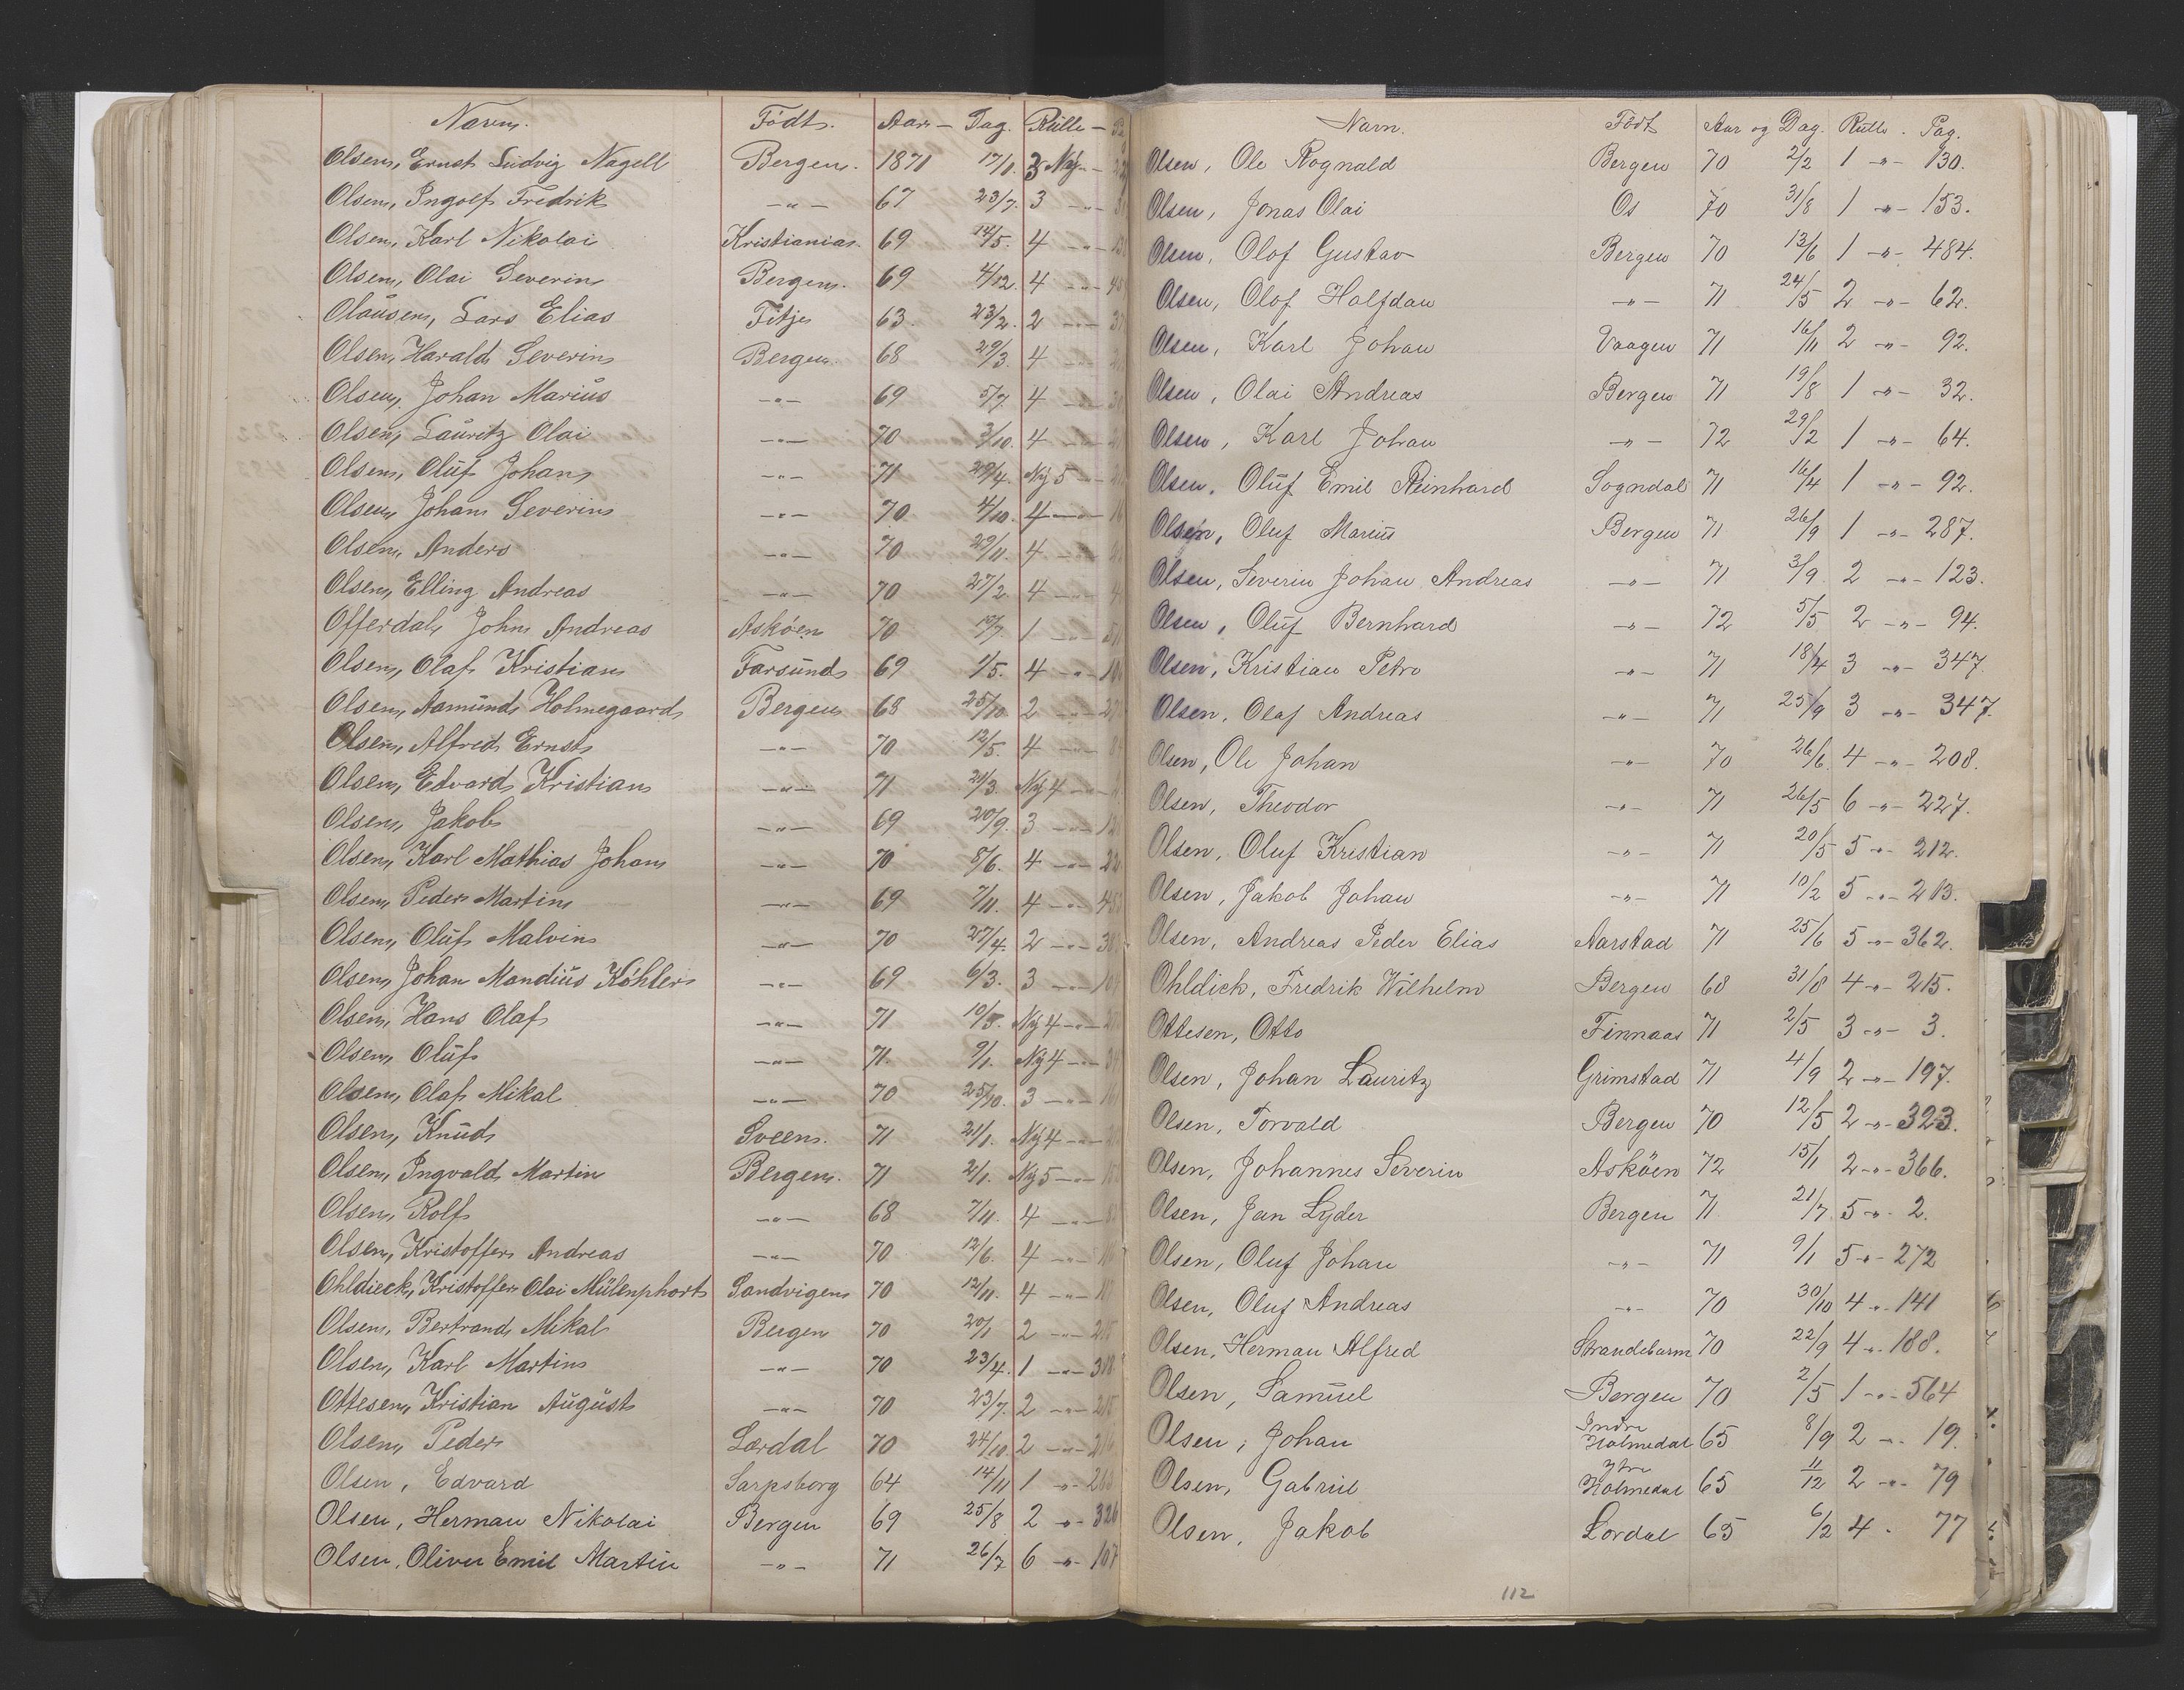 Navn. Født. Aar — Dag. Rulle —
Olsen, Ernst Ludvig Nagell Bergen. 1871 17/11. 3 Ny
Olsen, Ingolf Fredrik —"— 67 23/7. 3 —"—
Olsen, Karl Nikolai Kristiania. 69 14/5. 4 —"—
Olsen, Olai Severin Bergen. 69 4/12. 4 —"—
Olausen, Lars Elias Fitje 63. 23/2. 2 —"—
Olsen, Harald Severin Bergen. 68 29/3. 4 —"—
Olsen, Johan Marius —"— 69 5/7. 4 —"—
Olsen, Lauritz Olai —"— 70 3/10. 4 —"—
Olsen, Oluf Johan —"— 71 29/4. Ny 5 —"—
Olsen, Johan Severin —"— 70. 4/10. 4 —"—
Olsen, Anders —"— 70 29/11. 4 —"—
Olsen, Elling Andreas —"— 70 27/2. 4 —"—
Offerdal, John Andreas Askøen 70 19/7. 1 —"—
Olsen, Olaf Kristian Farsund 69 1/5. 4 —"—
Olsen, Aamund Holmegaard Bergen 68 25/10 2 —"—
Olsen, Alfred Ernst —"— 70 12/5. 4 —"—
Olsen, Edvard Kristian —"— 71 21/3. Ny 4 —"—
Olsen, Jakob —"— 69 20/9. 3 —"—
Olsen, Karl Mathias Johan —"— 70 8/6. 4 —"—
Olsen, Peder Martin —"— 69 7/11. 4 —"—
Olsen, Oluf Malvin —"— 70 27/4. 2 —"—
Olsen, Johan Mandius Köhler —"— 69 6/3. 3 —"—
Olsen, Hans Olaf —"— 71 10/3. Ny 4 —"—
Olsen, Oluf —"— 71. 9/1. Ny 4 —"—
Olsen, Olaf Mikal —"— 70 25/10. 3 —"—
Olsen, Knud Sveen. 71 21/1. Ny 4 —"—
Olsen, Ingvald Martin Bergen. 71 2/1. Ny 5 —"—
Olsen, Rolf —"— 68 7/11. 4 —"—
Olsen, Kristoffer Andreas —"— 70 12/6. 4 —"—
Ohldieck, Kristoffer Olai Mülenphort Sandvigen 70 12/11. 4 —"—
Olsen, Bertrand Mikal Bergen 70 20/1 2 —"— 215
Olsen, Karl Martin —"— 70 23/4. 1 —"— 318
Ottesen, Kristian August —"— 70 23/7. 2 —"— 215
Olsen, Peder Lærdal 70 24/10 2 —"— 216
Olsen, Edvard Sarpsborg 64 14/11 1 —"—
Olsen, Herman Nikolai Bergen 69 25/8 2 —"— 326
Olsen, Oliver Emil Martin —"— 71 26/7 6 —"— 107
Navn. Født Aar og Dag. Rulle. Pag.
Olsen, Ole Rognald Bergen 70 2/2 1 —"— 130.
Olsen, Jonas Olai Os 70 31/8 1 —"— 153.
Olsen, Olof Gustav Bergen 70 13/6 1 —"— 484.
Olsen, Olof Halfdan —"— 71 24/5 2 —"— 62.
Olsen, Karl Johan Vaagen 71 16/11 2 —"— 92.
Olsen, Olai Andreas Bergen 71 19/8 1 —"— 32.
Olsen, Karl Johan —"— 72 29/2 1 —"— 64.
Olsen, Oluf Emil Reinhard Sogndal 71 16/4 1 —"— 92.
Olsen, Oluf Marius Bergen 71 26/9 1 —"— 287.
Olsen, Severin Johan Andreas —"— 71 3/9. 2 —"— 123.
Olsen, Oluf Bernhard —"— 72 5/5 2 —"— 94.
Olsen, Kristian Petro —"— 71 18/4 3 —"— 347.
Olsen, Olaf Andreas —"— 71 25/9 3 —"— 347.
Olsen, Ole Johan —"— 70 26/6. 4 —"— 208.
Olsen, Theodor —"— 71 26/5 6 —"— 227.
Olsen, Oluf Kristian —"— 71 20/5 5 —"— 212.
Olsen, Jakob Johan —"— 71 10/2 5 —"— 213.
Olsen, Andreas Peder Elias Aarstad 71 25/6 5 —"— 362.
Ohldick, Fredrik Wilhelm Bergen 68 31/8 4 —"— 215.
Ottesen, Otto Finnaas 71 2/5 3 —"— 3.
Olsen, Johan Lauritz Grimstad 71 4/9 2 —"— 197.
Olsen, Torvald Bergen 70 12/5 2 —"— 323.
Olsen, Johannes Severin Askøen 72 15/1 2 —"— 366.
Olsen, Jan Lyder Bergen 71 21/7 5 —"— 2.
Olsen, Oluf Johan —"— 71 9/1 5 —"— 272
Olsen, Oluf Andreas —"— 70 30/10 4 —"— 141
Olsen, Herman Alfred Strandebarm 70 22/9 4 —"— 188.
Olsen, Samuel Bergen 70 2/5 1 —"— 564
Olsen, Johan Indre Holmedal 65 8/9 2 —"— 19.
Olsen, Gabriel Ytre Holmedal 65 11/12 2 —"— 79
Olsen, Jakob Lærdal 65 6/2 4 . 77
112